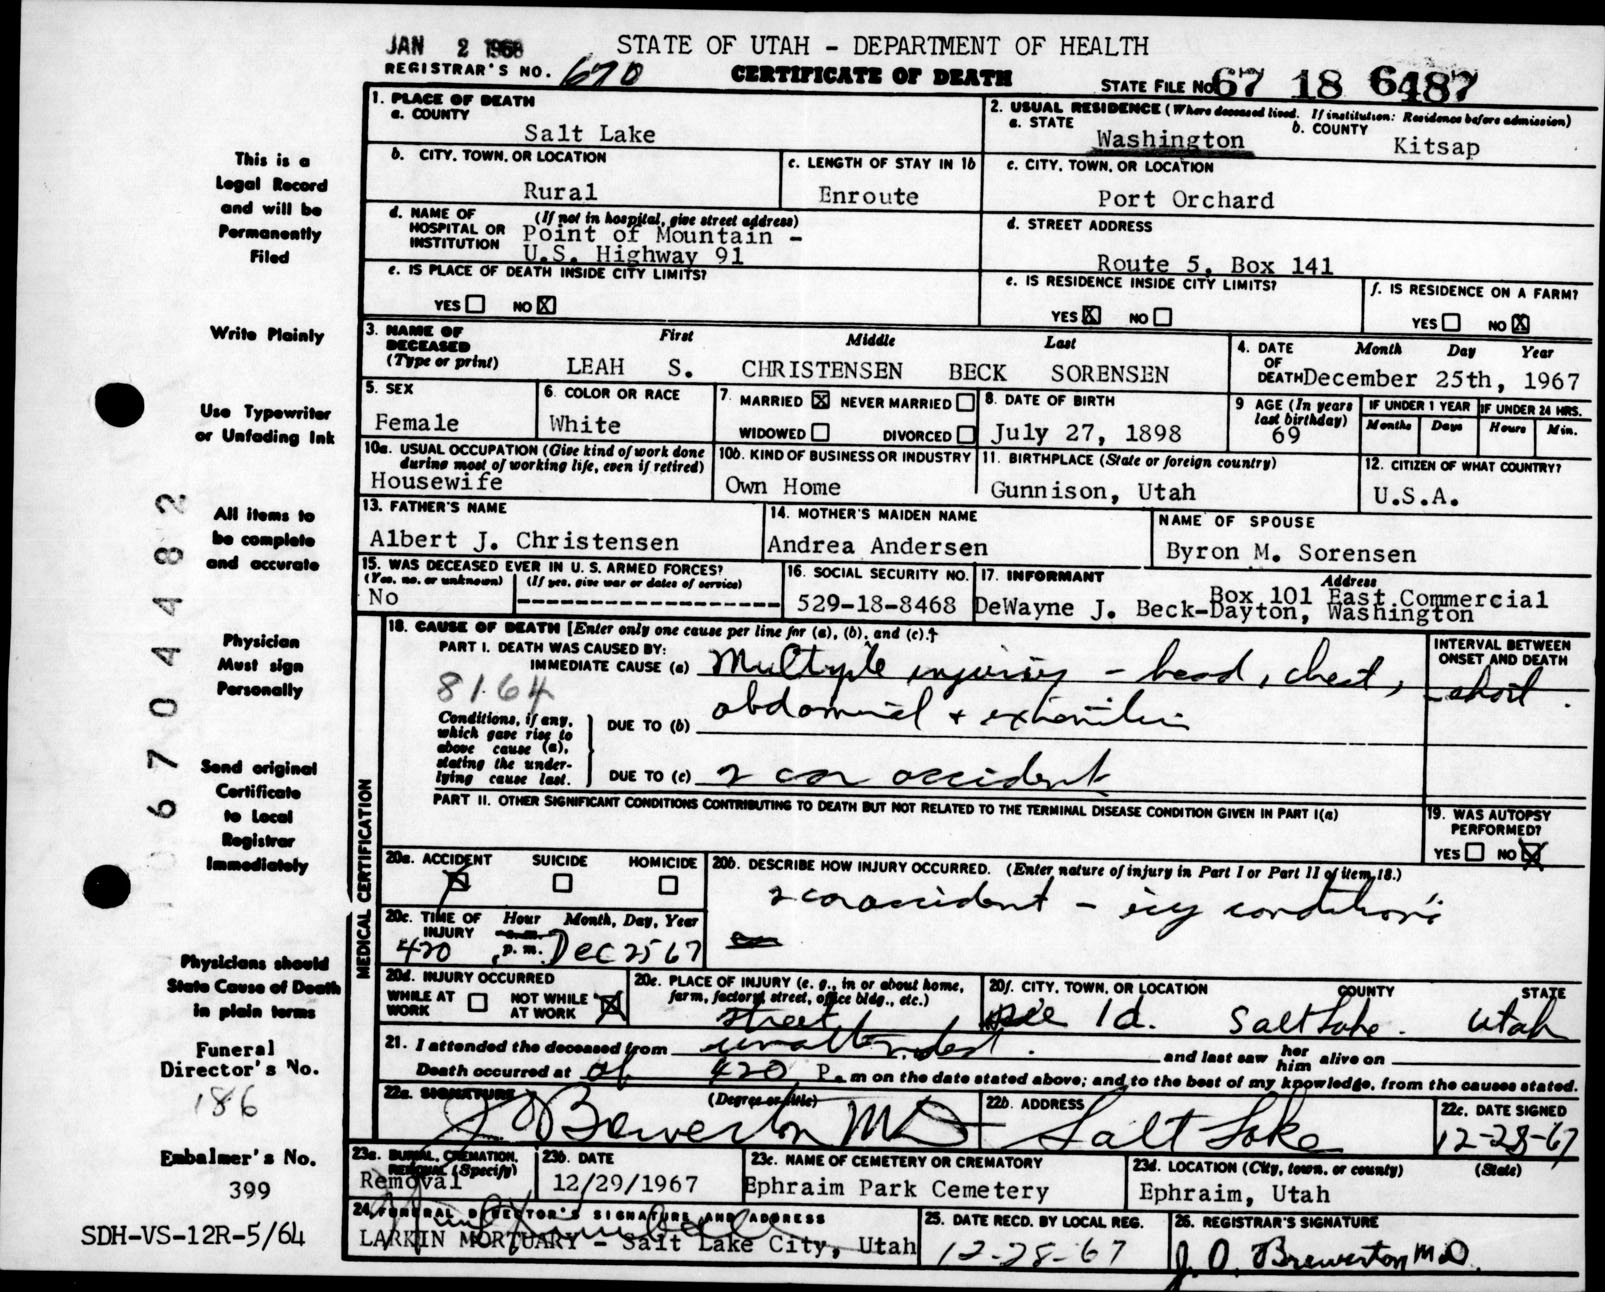 JAN 2 1968
STATE OF UTAH - DEPARTMENT OF HEALTH
REGISTRAR'S NO. 670
CERTIFICATE OF DEATH
STATE FILE NO. 67 18 6487
1. PLACE OF DEATH
a. COUNTY
Salt Lake
2. USUAL RESIDENCE (Where deceased lived. If institution: Residence before admission)
a. STATE
Washington
b. COUNTY
Kitsap
b. CITY, TOWN, OR LOCATION
Rural
c. LENGTH OF STAY IN 1b
Enroute
c. CITY, TOWN, OR LOCATION
Port Orchard
d. NAME OF HOSPITAL OR INSTITUTION
(If not in hospital, give street address)
Point of Mountain -
U.S. Highway 91
d. STREET ADDRESS
Route 5, Box 141
e. IS PLACE OF DEATH INSIDE CITY LIMITS?
YES NO X
e. IS RESIDENCE INSIDE CITY LIMITS?
YES X NO
f. IS RESIDENCE ON A FARM?
YES NO X
3. NAME OF DECEASED (Type or print)
First Middle Last
LEAH S. CHRISTENSEN BECK SORENSEN
4. DATE OF DEATH Month Day Year
December 25th, 1967
5. SEX
Female
6. COLOR OR RACE
White
7. MARRIED X NEVER MARRIED
WIDOWED DIVORCED
8. DATE OF BIRTH
July 27, 1898
9 AGE (In years last birthday)
69
IF UNDER 1 YEAR
Months Days
IF UNDER 24 HRS.
Hours Min.
10a. USUAL OCCUPATION (Give kind of work done during most of working life, even if retired)
Housewife
10b. KIND OF BUSINESS OR INDUSTRY
Own Home
11. BIRTHPLACE (State or foreign country)
Gunnison, Utah
12. CITIZEN OF WHAT COUNTRY?
U.S.A.
13. FATHER'S NAME
Albert J. Christensen
14. MOTHER'S MAIDEN NAME
Andrea Andersen
NAME OF SPOUSE
Byron M. Sorensen
15. WAS DECEASED EVER IN U.S. ARMED FORCES?
(Yes, no, or unknown) (If yes, give war or dates of service)
No --------------------
16. SOCIAL SECURITY NO.
529-18-8468
17. INFORMANT Address
Box 101 East Commercial
DeWayne J. Beck-Dayton, Washington
MEDICAL CERTIFICATION
18. CAUSE OF DEATH [Enter only one cause per line for (a), (b), and (c).]
PART I. DEATH WAS CAUSED BY:
IMMEDIATE CAUSE (a) Multiple injuries - head, chest,
8164
Conditions, if any, which gave rise to above cause (a), stating the underlying cause last.
DUE TO (b) abdominal + extremities
DUE TO (c) 2 car accident
INTERVAL BETWEEN ONSET AND DEATH
short
PART II. OTHER SIGNIFICANT CONDITIONS CONTRIBUTING TO DEATH BUT NOT RELATED TO THE TERMINAL DISEASE CONDITION GIVEN IN PART I(a)
19. WAS AUTOPSY PERFORMED?
YES NO X
20a. ACCIDENT SUICIDE HOMICIDE
X
20b. DESCRIBE HOW INJURY OCCURRED. (Enter nature of injury in Part I or Part II of item 18.)
2 car accident - icy conditions
20c. TIME OF INJURY Hour Month, Day, Year
420 a.m. p.m. Dec 25 67
20d. INJURY OCCURRED
WHILE AT WORK NOT WHILE AT WORK X
20e. PLACE OF INJURY (e. g., in or about home, farm, factory, street, office bldg., etc.)
street
20f. CITY, TOWN, OR LOCATION COUNTY STATE
see 1d. Salt Lake. Utah
21. I attended the deceased from unattended. and last saw her him alive on
Death occurred at 420 P. m on the date stated above; and to the best of my knowledge, from the causes stated.
22a. SIGNATURE (Degree or title)
J O Brewerton MD
22b. ADDRESS
Salt Lake
22c. DATE SIGNED
12-28-67
23a. BURIAL, CREMATION, REMOVAL (Specify)
Removal
23b. DATE
12/29/1967
23c. NAME OF CEMETERY OR CREMATORY
Ephraim Park Cemetery
23d. LOCATION (City, town, or county) (State)
Ephraim, Utah
24. FUNERAL DIRECTOR'S SIGNATURE AND ADDRESS
LARKIN MORTUARY - Salt Lake City, Utah
25. DATE RECD. BY LOCAL REG.
12-28-67
26. REGISTRAR'S SIGNATURE
J. O. Brewerton MD.
This is a
Legal Record
and will be
Permanently
Filed
Write Plainly
Use Typewriter
or Unfading Ink
All items to
be complete
and accurate
Physician
Must sign
Personally
Send original
Certificate
to Local
Registrar
Immediately
Physicians should
State Cause of Death
in plain terms
Funeral
Director's No.
186
Embalmer's No.
399
SDH-VS-12R-5/64
06704482